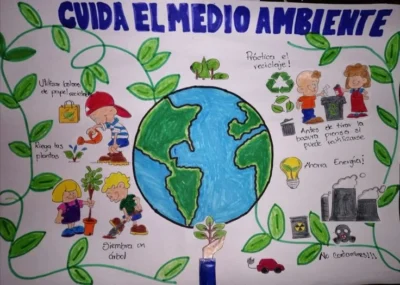 CUIDA EL MEDIO AMBIENTE
Practica el
reciclaje!
Utiliza bolsas
de papel reciclado
Riega las
plantas
Antes de tirar la
basura piensa si
puede reutilizarse
Ahorra Energía!
Siembra un
árbol
No contamines!!!